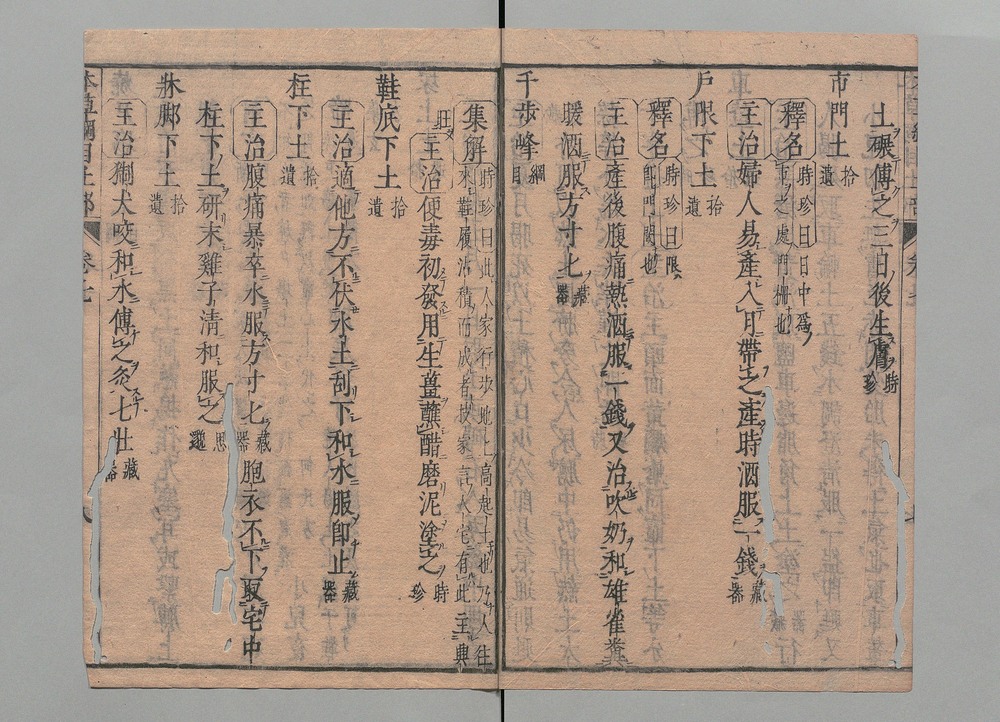 土碾傅之三日後生膚時珍
市門土拾遺
釋名時珍曰日中爲市之處門柵也
主治婦人易產入月帶之產時酒服一錢藏器
戶限下土拾遺
釋名時珍曰限即門閾也
主治產後腹痛熱酒服一錢又治吹奶和雄雀糞
暖酒服方寸匕藏器
千步峰綱目
集解時珍曰此人家行步地上高起土也乃人往來鞋履沾積而成者技家言人宅有此主興旺
主治便毒初發用生薑蘸醋磨泥塗之時珍
鞋底下土拾遺
主治適他方不伏水土刮下和水服即止藏器
柱下土拾遺
主治腹痛暴卒水服方寸匕藏器胞衣不下取宅中
柱下土研末雞子清和服之思邈
牀脚下土拾遺
主治猘犬咬和水傅之灸七壯藏器
本草綱目土部 卷七